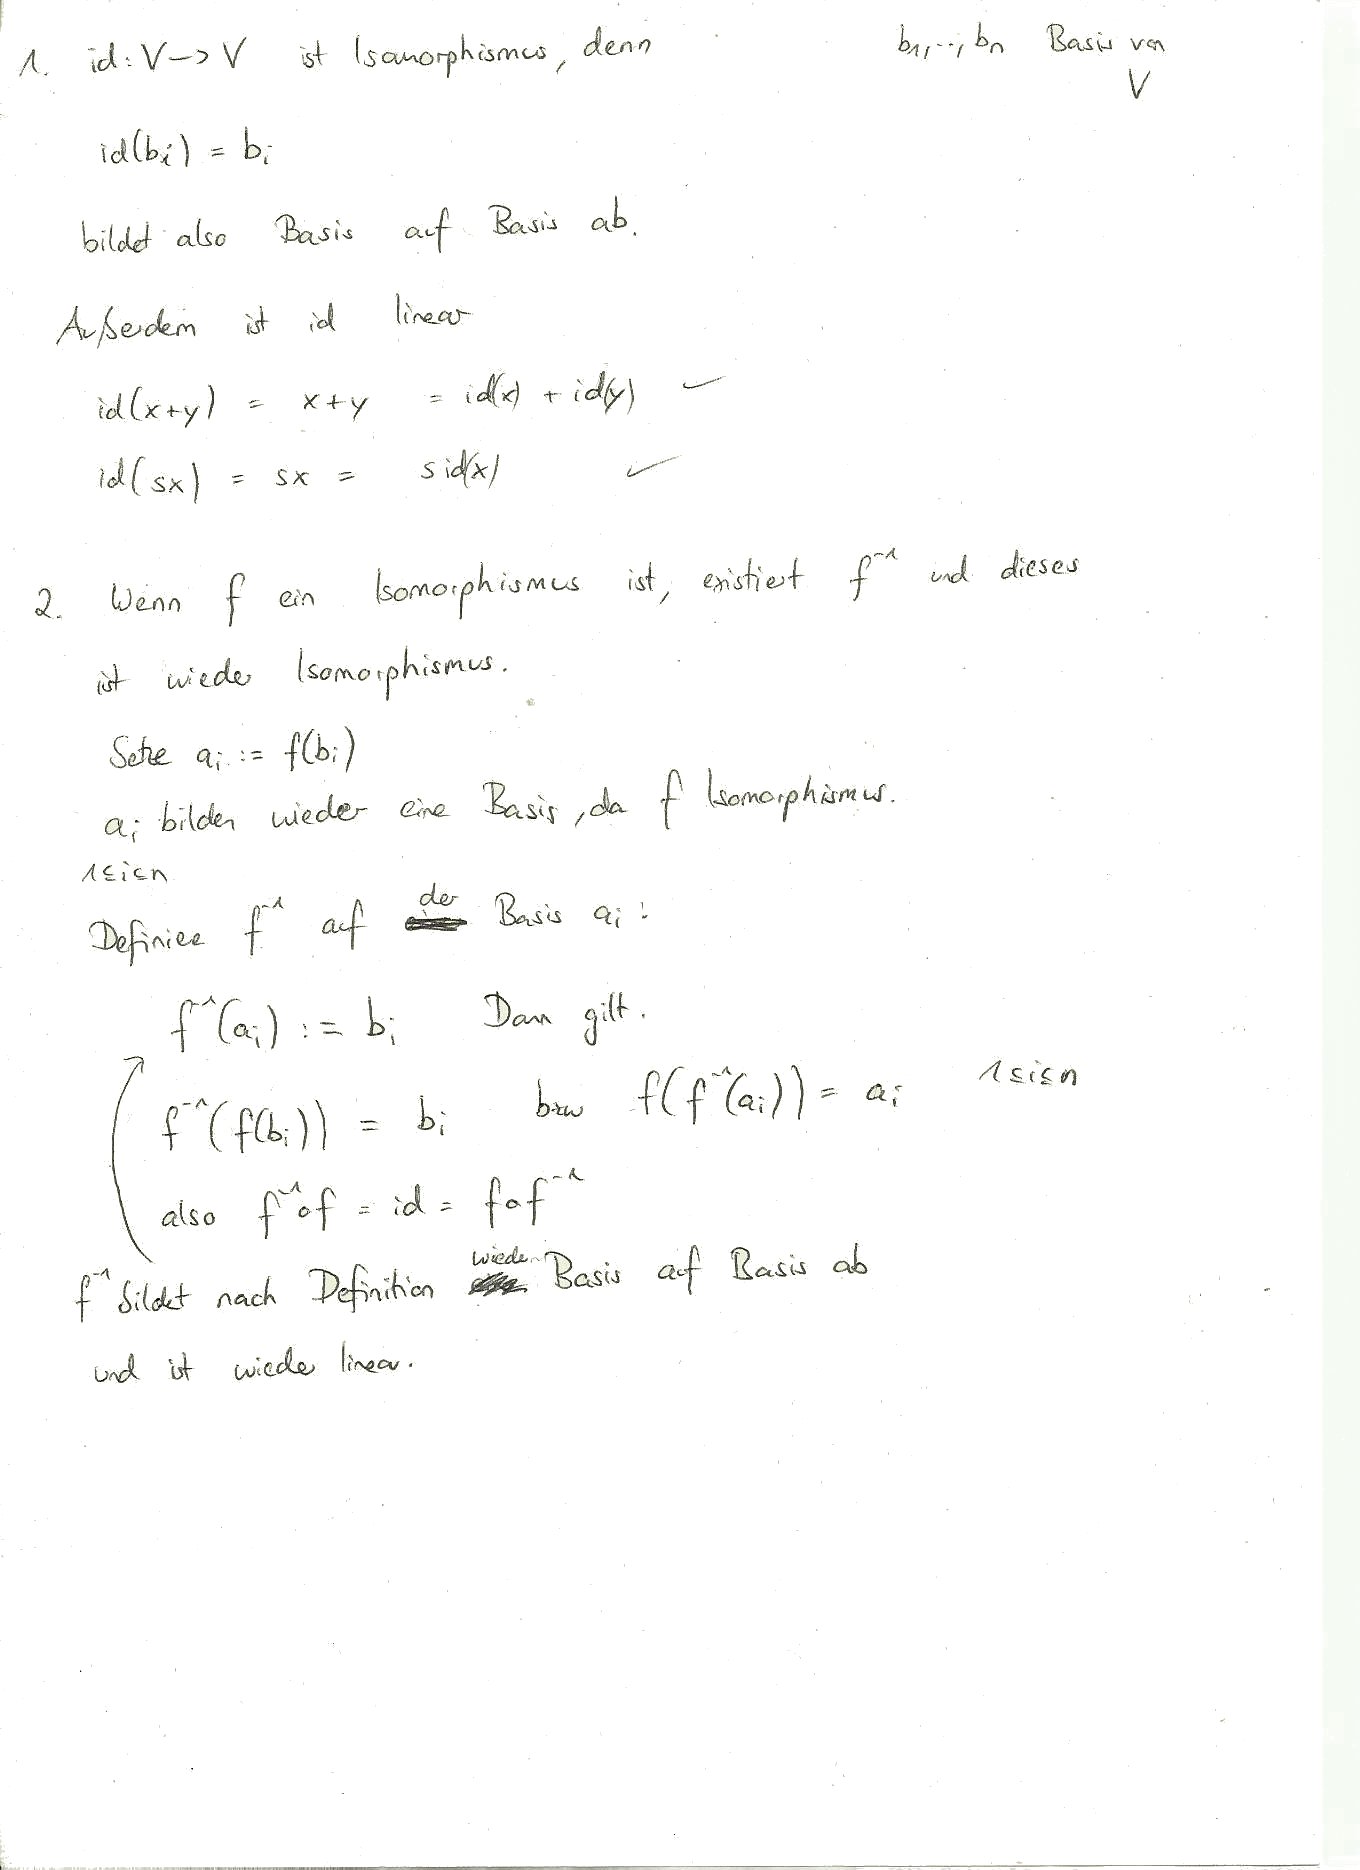 1. id: V -> V ist Isomorphismus, denn b₁,..., bₙ Basis von
V
id(bᵢ) = bᵢ
bildet also Basis auf Basis ab.
Außerdem ist id linear
id(x+y) = x+y = id(x) + id(y) ✓
id(sx) = sx = s id(x) ✓
2. Wenn f ein Isomorphismus ist, existiert f⁻¹ und dieses
ist wieder Isomorphismus.
Setze aᵢ := f(bᵢ)
aᵢ bilden wieder eine Basis, da f Isomorphismus.
1≤i≤n
Definiere f⁻¹ auf der Basis aᵢ:
f⁻¹(aᵢ) := bᵢ Dann gilt.
f⁻¹(f(bᵢ)) = bᵢ bzw f(f⁻¹(aᵢ)) = aᵢ 1≤i≤n
also f⁻¹∘f = id = f∘f⁻¹
f⁻¹ bildet nach Definition wieder Basis auf Basis ab
und ist wieder linear.